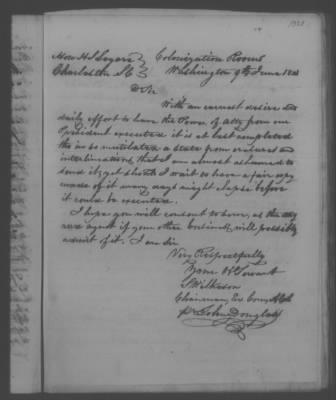 Hon H S Legare } Colonization Rooms
Charleston S C } Washington 9th June
D Sir
With an earnest desire and
daily effort to have the Power of atty from our
President executed it is at last completed
tho in so mutilated a state from erasures and
interlineations, that I am almost ashamed to
send it; yet should I wait to have a fair copy
made of it many days might elapse before
it could be executed.
I hope you will consent to have, as the
agent if your other business, will possibly
admit of it. I am Sir
Very Respectfully
Your Ob Servant
S Wilkeson
Chairman Ex Com
pr John Douglass